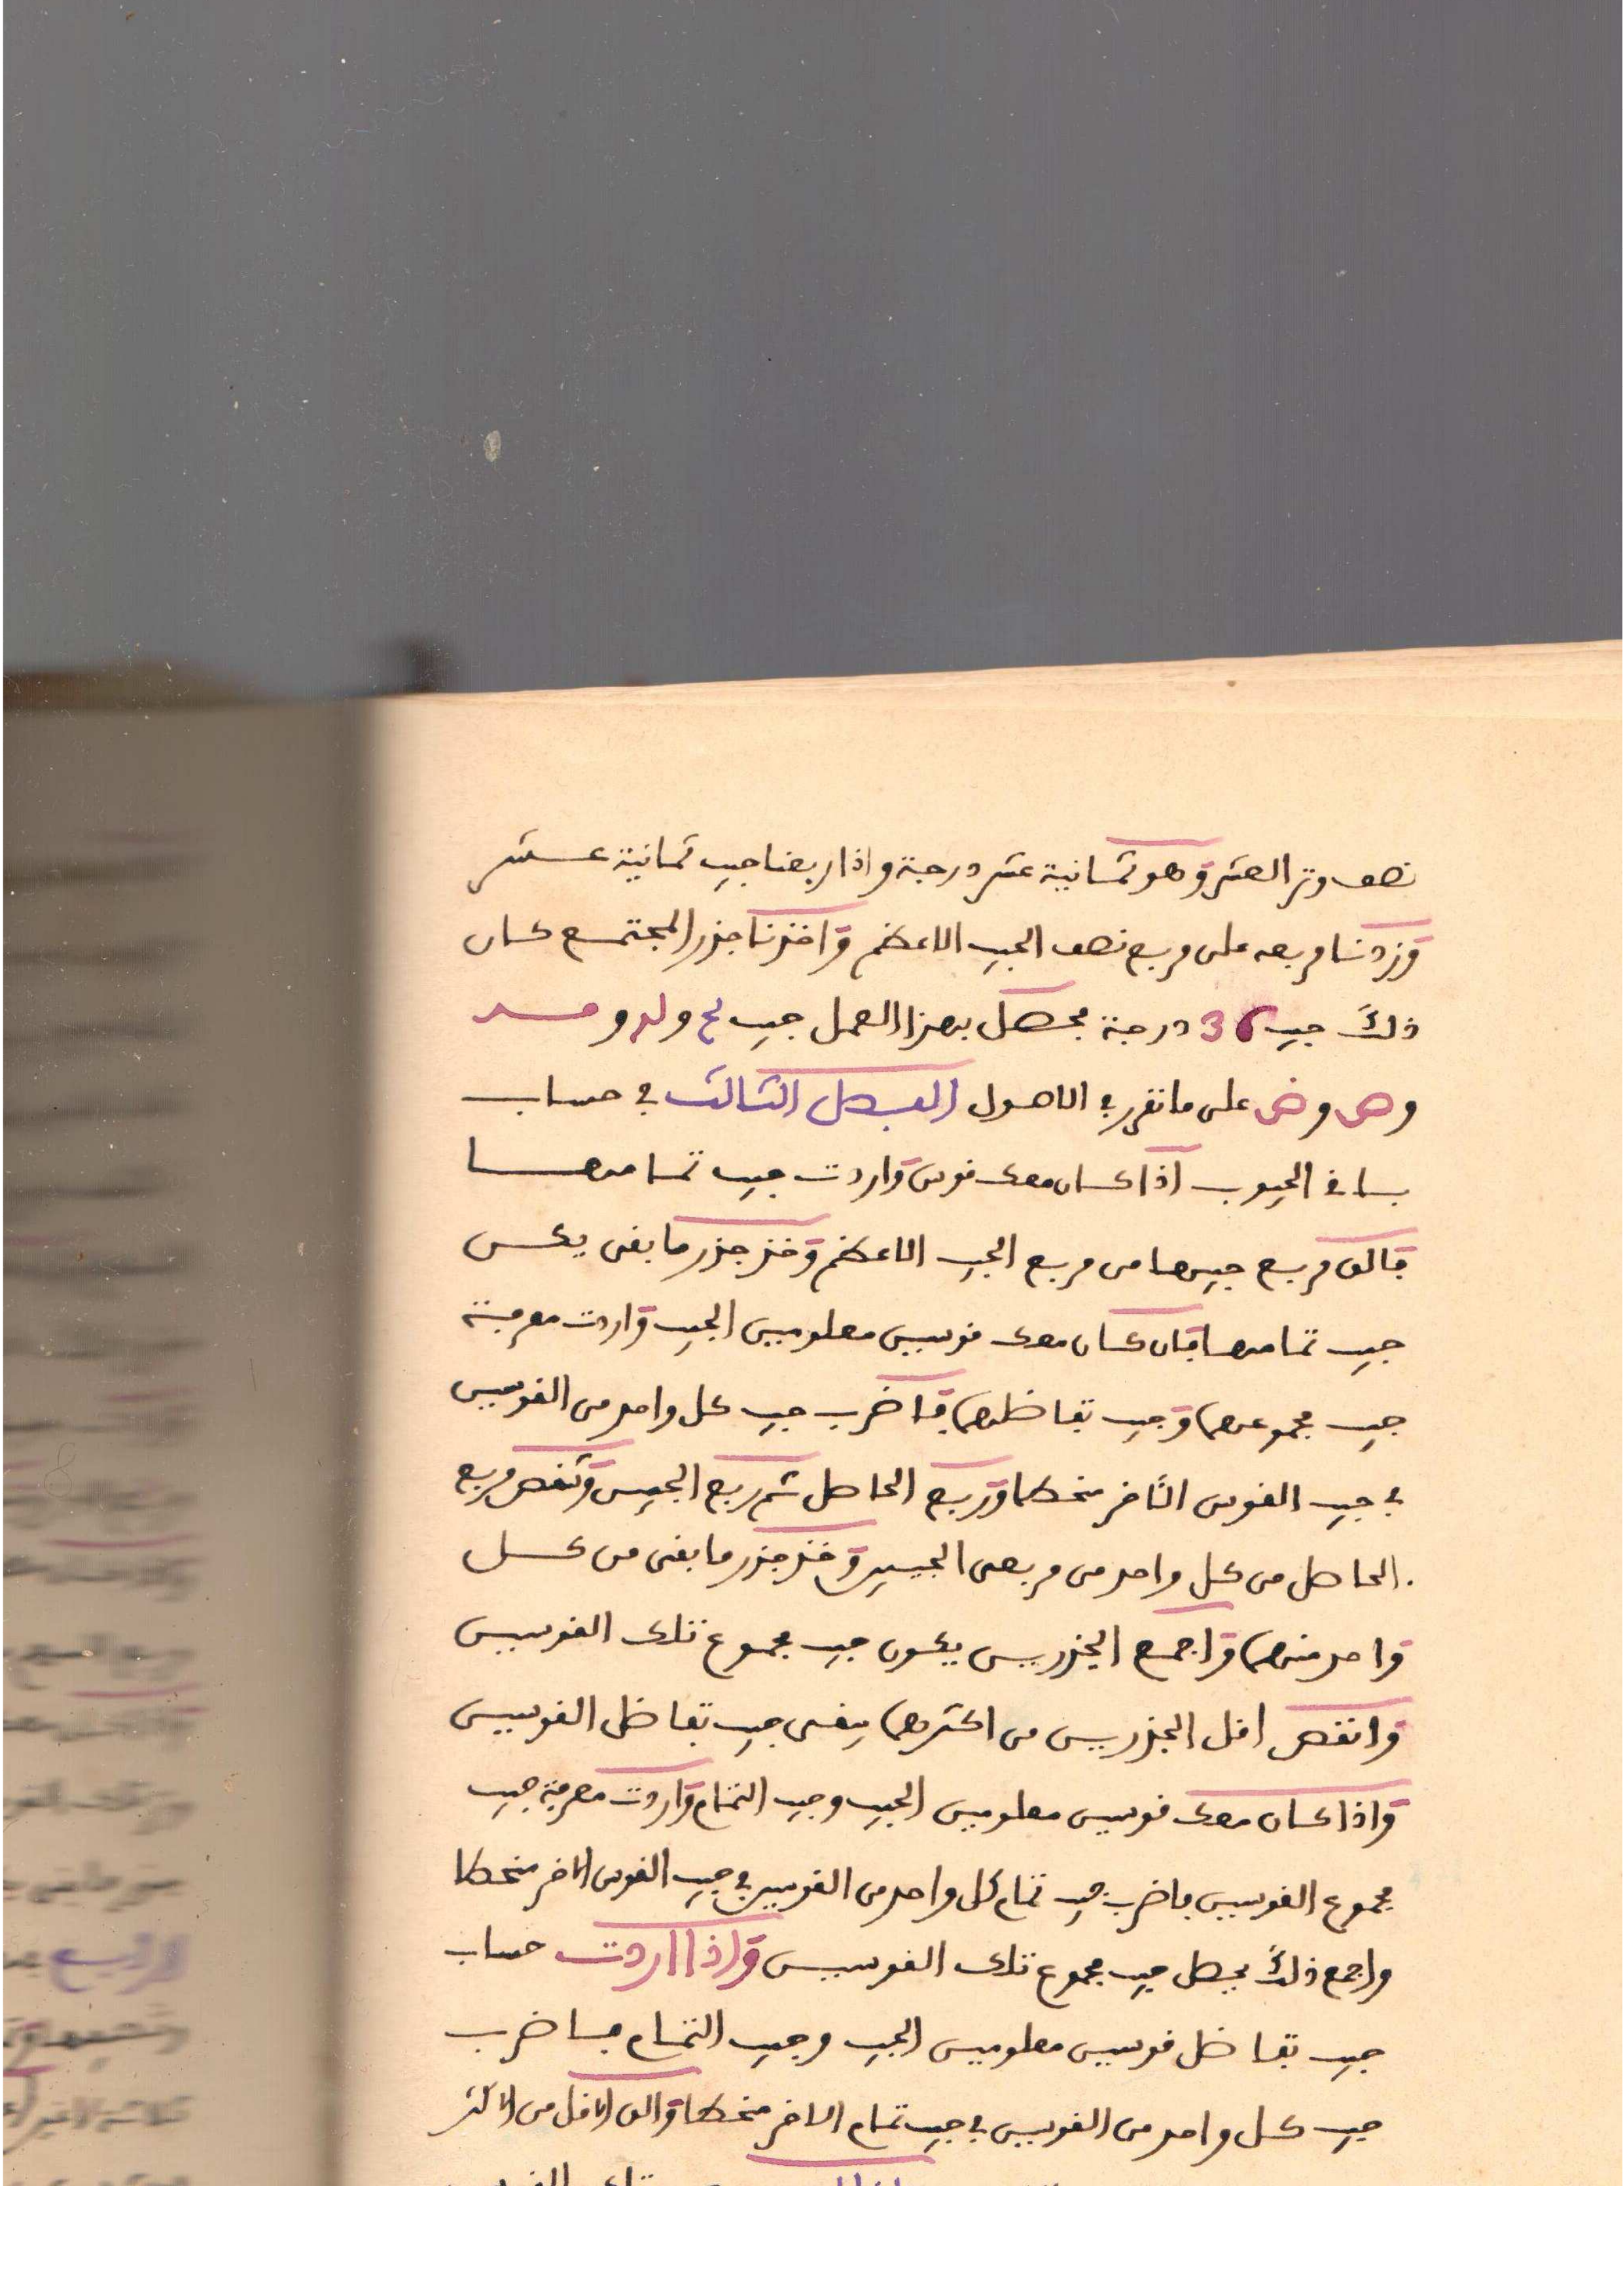 نصف وتر العشر وهو ثمانية عشر درجة واذا ربعنا جيب ثمانية عشر
وزدنا مربعه على مربع نصف الجيب الاعظم واخذنا جذر المجتمع كان
ذلك جيب 36 درجة فحصل بهذا العمل جيب لح ولد و
وص وض على ما تقرر في الاصول الفصل الثالث في حساب
باقي الجيوب اذا كان معك قوس واردت جيب تمامها
فالق مربع جيبها من مربع الجيب الاعظم وخذ جذر ما بقى يكن
جيب تمامها فان كان معك قوسين معلومين الجيب واردت معرفة
جيب مجموعهما وجيب تفاضلهما فاضرب جيب كل واحد من القوسين
في جيب القوس الآخر منحطا وربع الحاصل ثم ربع الجيبين وتنقص مربع
الحاصل من كل واحد من مربعى الجيبين وخذ جذر ما بقى من كل
واحد منهما واجمع الجذرين يكون جيب مجموع تلك القوسين
وانقص اقل الجذرين من اكثرهما يبقى جيب تفاضل القوسين
واذا كان معك قوسين معلومين الجيب وجيب التمام واردت معرفة جيب
مجموع القوسين فاضرب جيب تمام كل واحد من القوسين في جيب القوس الاخر منحطا
واجمع ذلك يحصل جيب مجموع تلك القوسين واذا اردت حساب
جيب تفاضل قوسين معلومين الجيب وجيب التمام فاضرب
جيب كل واحد من القوسين في جيب تمام الاخر منحطا والق الاقل من الاكثر